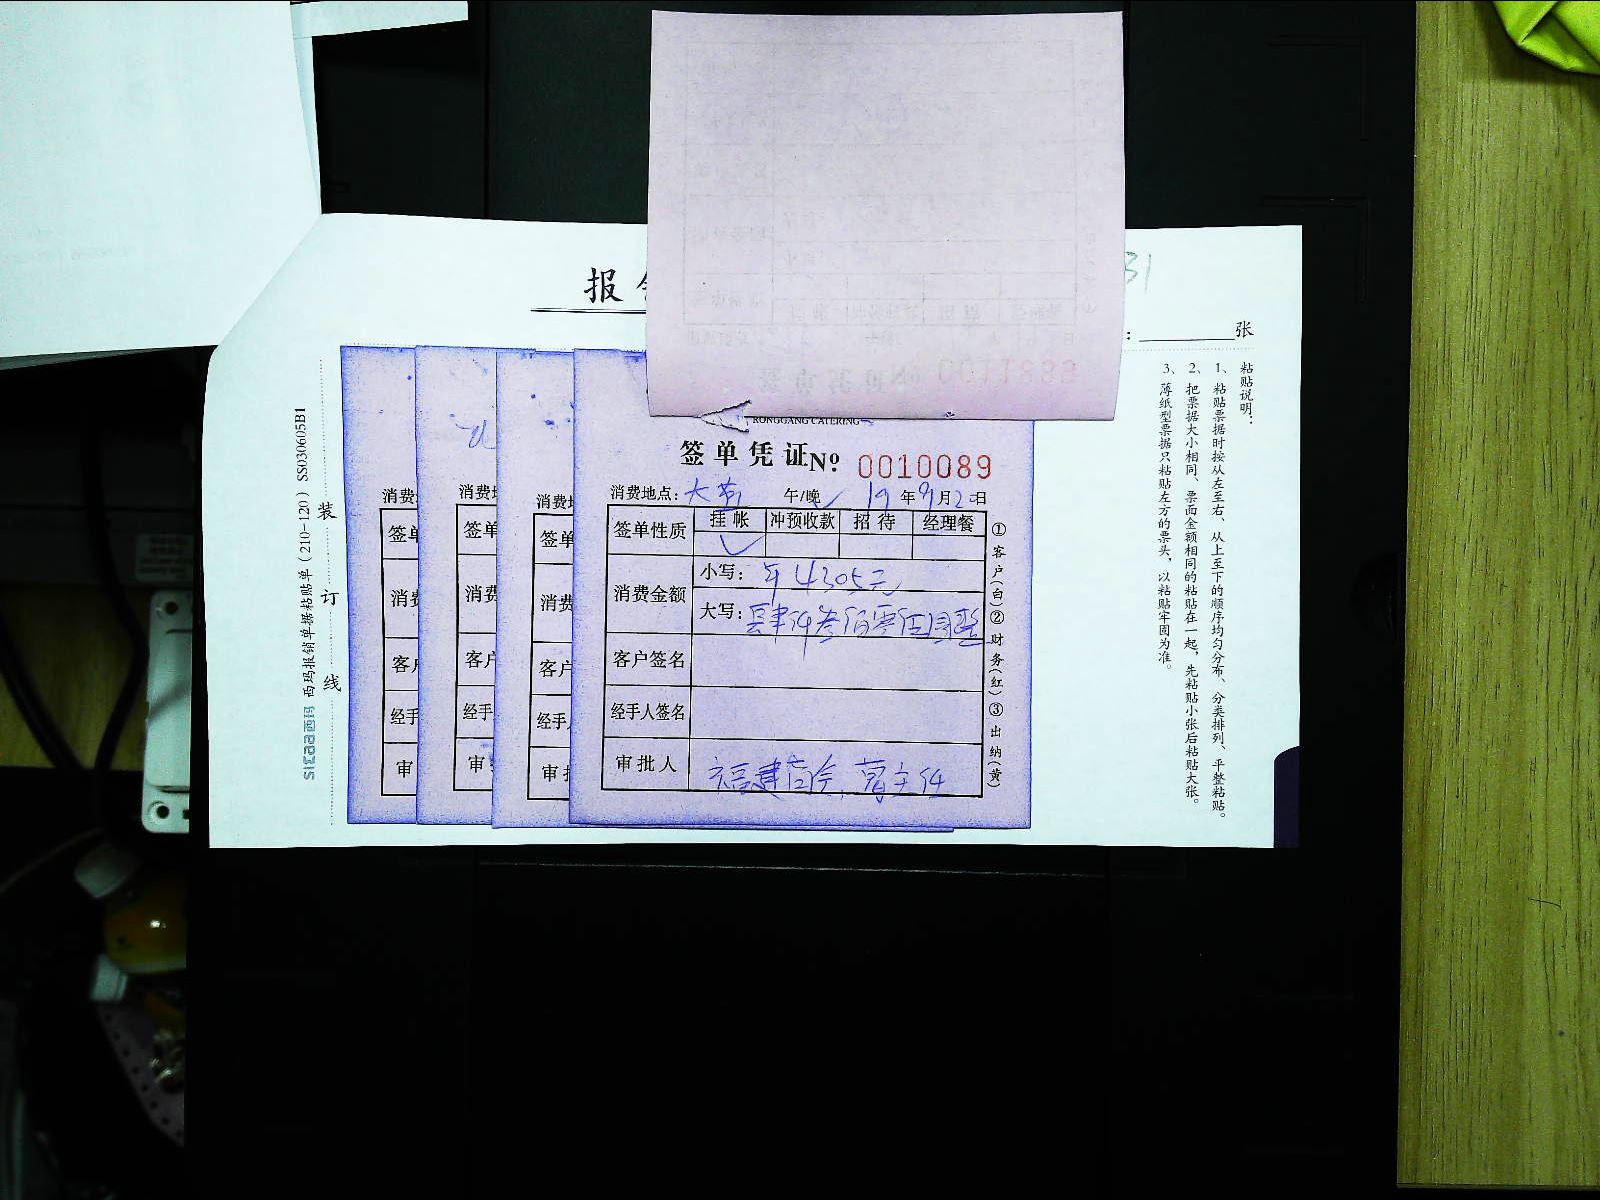 报
31
: ________张
RONGGANG CATERING
签单凭证 No: 0010089
消费地点: 大 午/晚 ✓ 19年9月20日
签单性质 挂帐 冲预收款 招待 经理餐
✓
消费金额 小写: ¥4305元
大写: 肆仟叁佰零伍圆整
客户签名
经手人签名
审批人 福建商会, 曾主任
①客户(白)②财务(红)③出纳(黄)
消费
签单
消费
客户
经手
审
消费
签单
消费
客户
经手
审
消费地
签单
消费
客户
经手人
审批
粘贴说明:
1、粘贴票据时按从左至右、从上至下的顺序均匀分布、分类排列、平整粘贴。
2、把票据大小相同、票面金额相同的粘贴在一起,先粘贴小张后粘贴大张。
3、薄纸型票据只粘贴左方的票头,以粘贴牢固为准。
装订线
simaa西玛 西玛报销单据粘贴单(210-120) SS030605B1
0011888